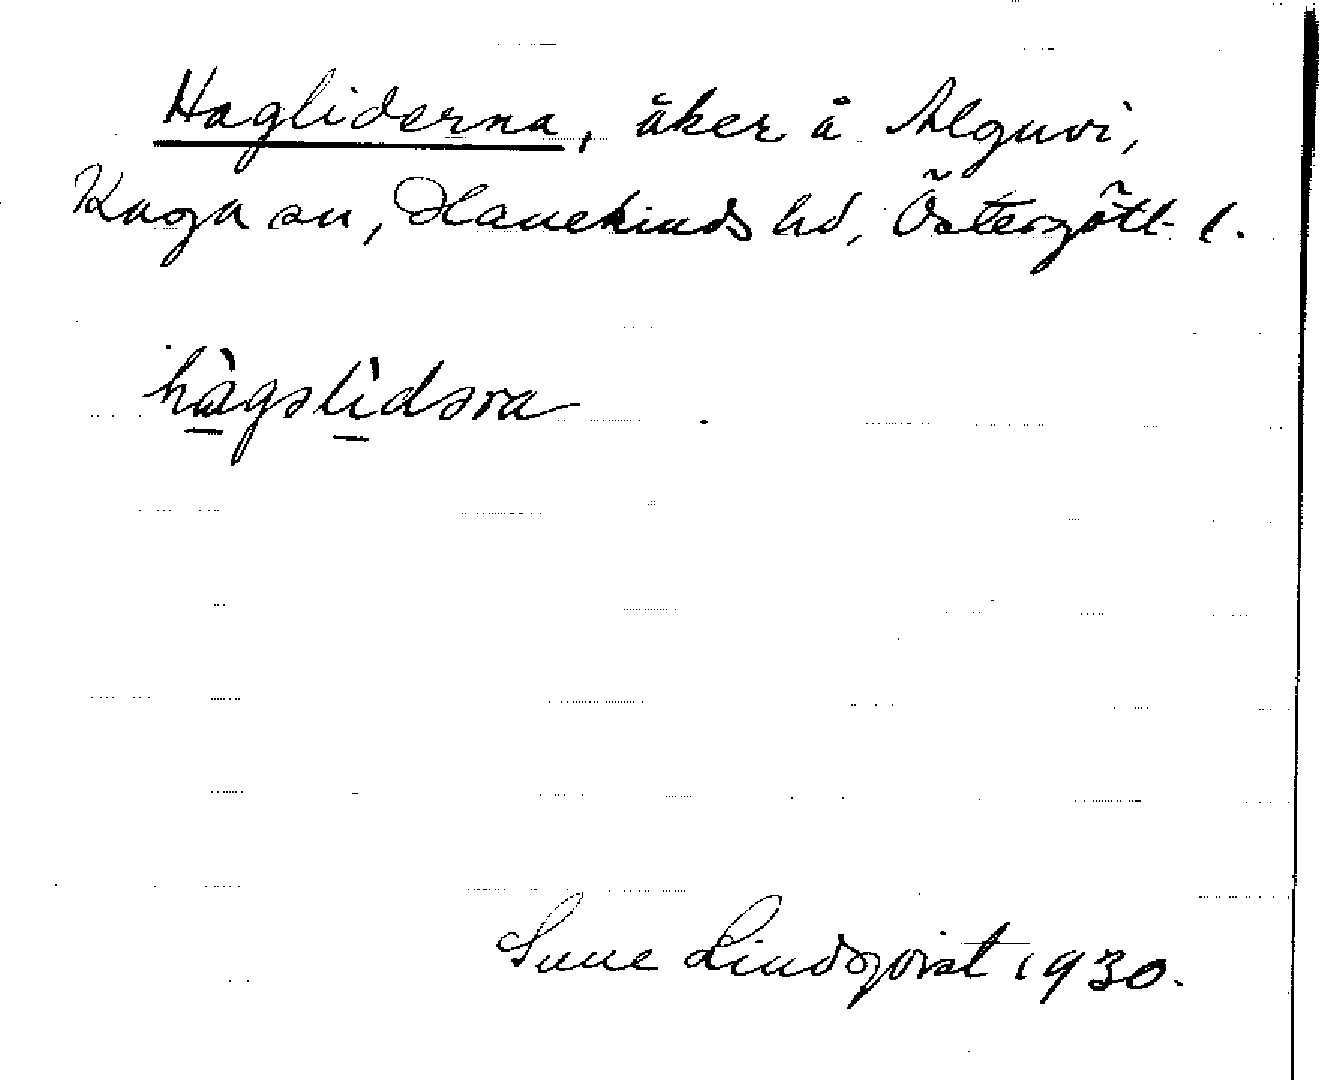 Hagliderna, åker å Alguvi,
Kaga sn, Hanekinds hd, Östergötl. l.
hàgslìdsra
Sune Lindqvist 1930.